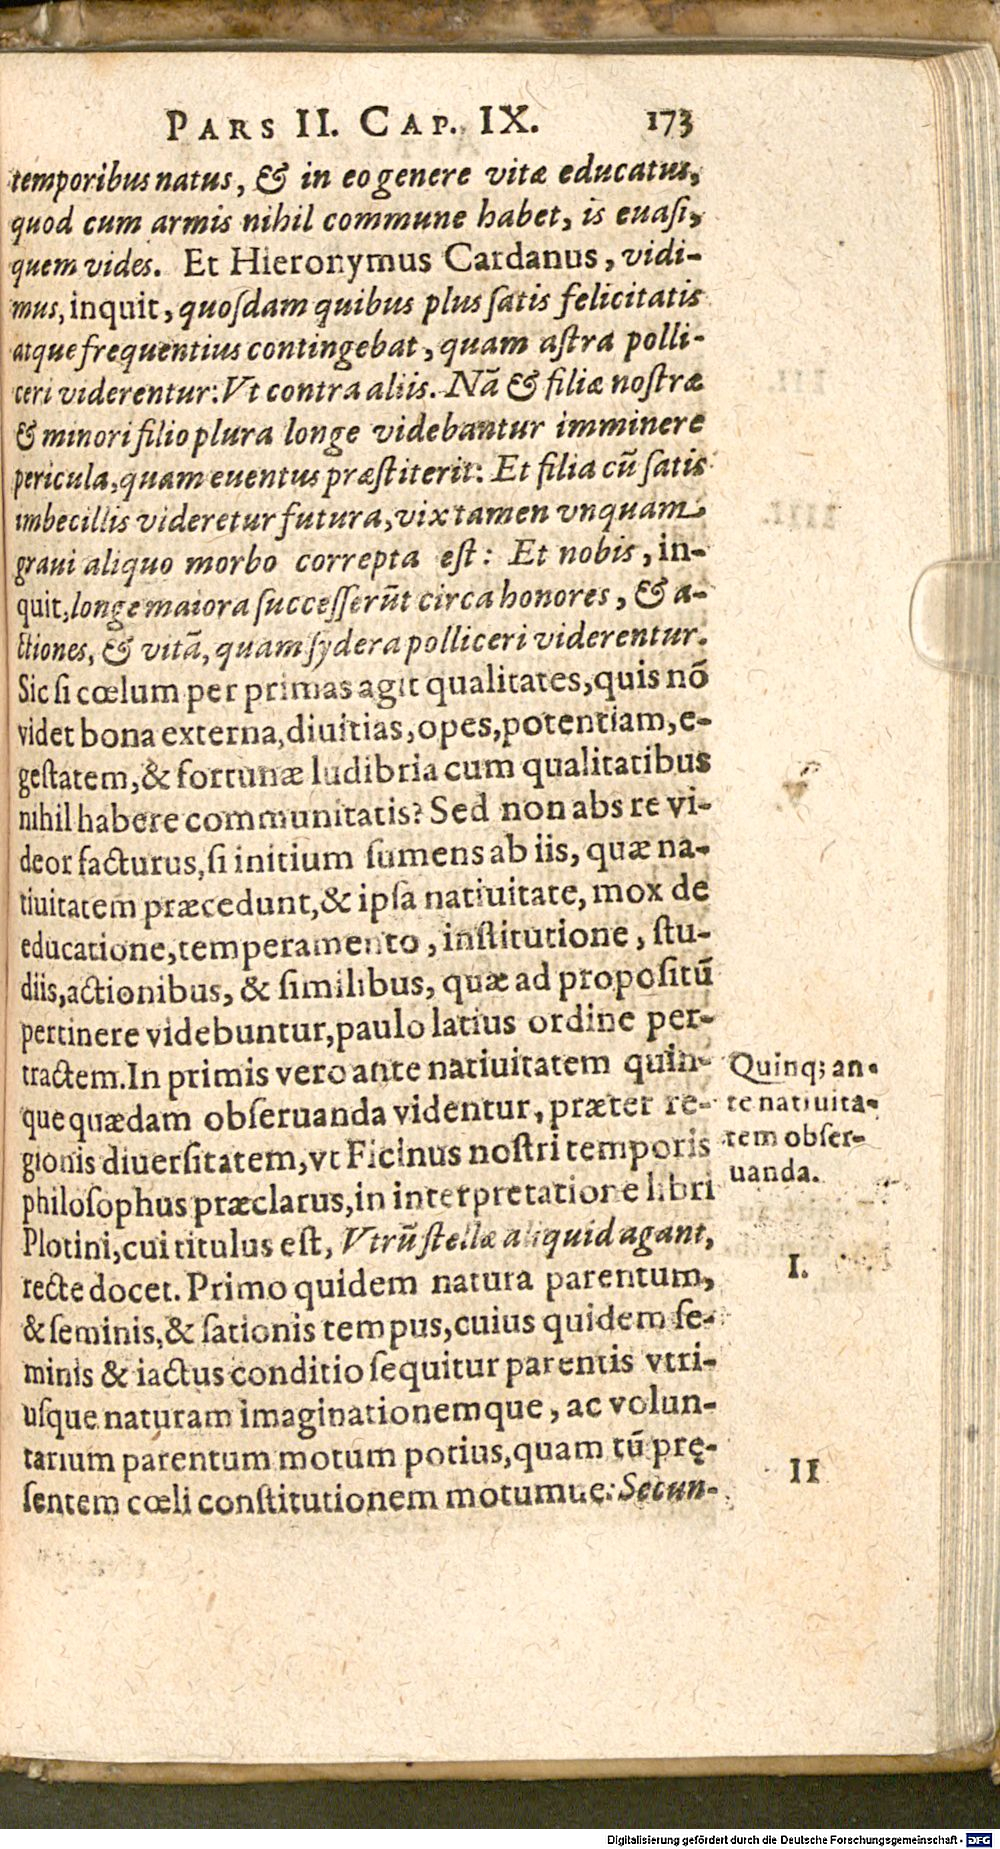 PARS II. CAP. IX. 173
temporibus natus, & in eo genere vitæ educatus,
quod cum armis nihil commune habet, is euasi,
quem vides. Et Hieronymus Cardanus, vidi-
mus, inquit, quosdam quibus plus satis felicitatis
atque frequentius contingebat, quam astra polli-
ceri viderentur: Vt contra aliis. Nā & filiæ nostræ
& minori filio plura longe videbantur imminere
pericula, quam euentus præstiterit: Et filia cū satis
imbecillis videretur futura, vix tamen vnquam
graui aliquo morbo correpta est: Et nobis, in-
quit, longe maiora successerūt circa honores, & a-
ctiones, & vitā, quam sydera polliceri viderentur.
Sic si cœlum per primas agit qualitates, quis nō
videt bona externa, diuitias, opes, potentiam, e-
gestatem, & fortunæ ludibria cum qualitatibus
nihil habere communitatis? Sed non abs re vi-
deor facturus, si initium sumens ab iis, quæ na-
tiuitatem præcedunt, & ipsa natiuitate, mox de
educatione, temperamento, institutione, stu-
diis, actionibus, & similibus, quæ ad propositū
pertinere videbuntur, paulo latius ordine per-
tractem. In primis vero ante natiuitatem quin-
que quædam obseruanda videntur, præter re-
gionis diuersitatem, vt Ficinus nostri temporis
philosophus præclarus, in interpretatione libri
Plotini, cui titulus est, Vtrū stellæ aliquid agant,
recte docet. Primo quidem natura parentum,
& seminis, & sationis tempus, cuius quidem se-
minis & iactus conditio sequitur parentis vtri-
usque naturam imaginationemque, ac volun-
tarium parentum motum potius, quam tū prę-
sentem cœli constitutionem motumue: Secun-
Quinq; an-
te natiuita-
tem obser-
uanda.
I.
II
Digitalisierung gefördert durch die Deutsche Forschungsgemeinschaft - DFG